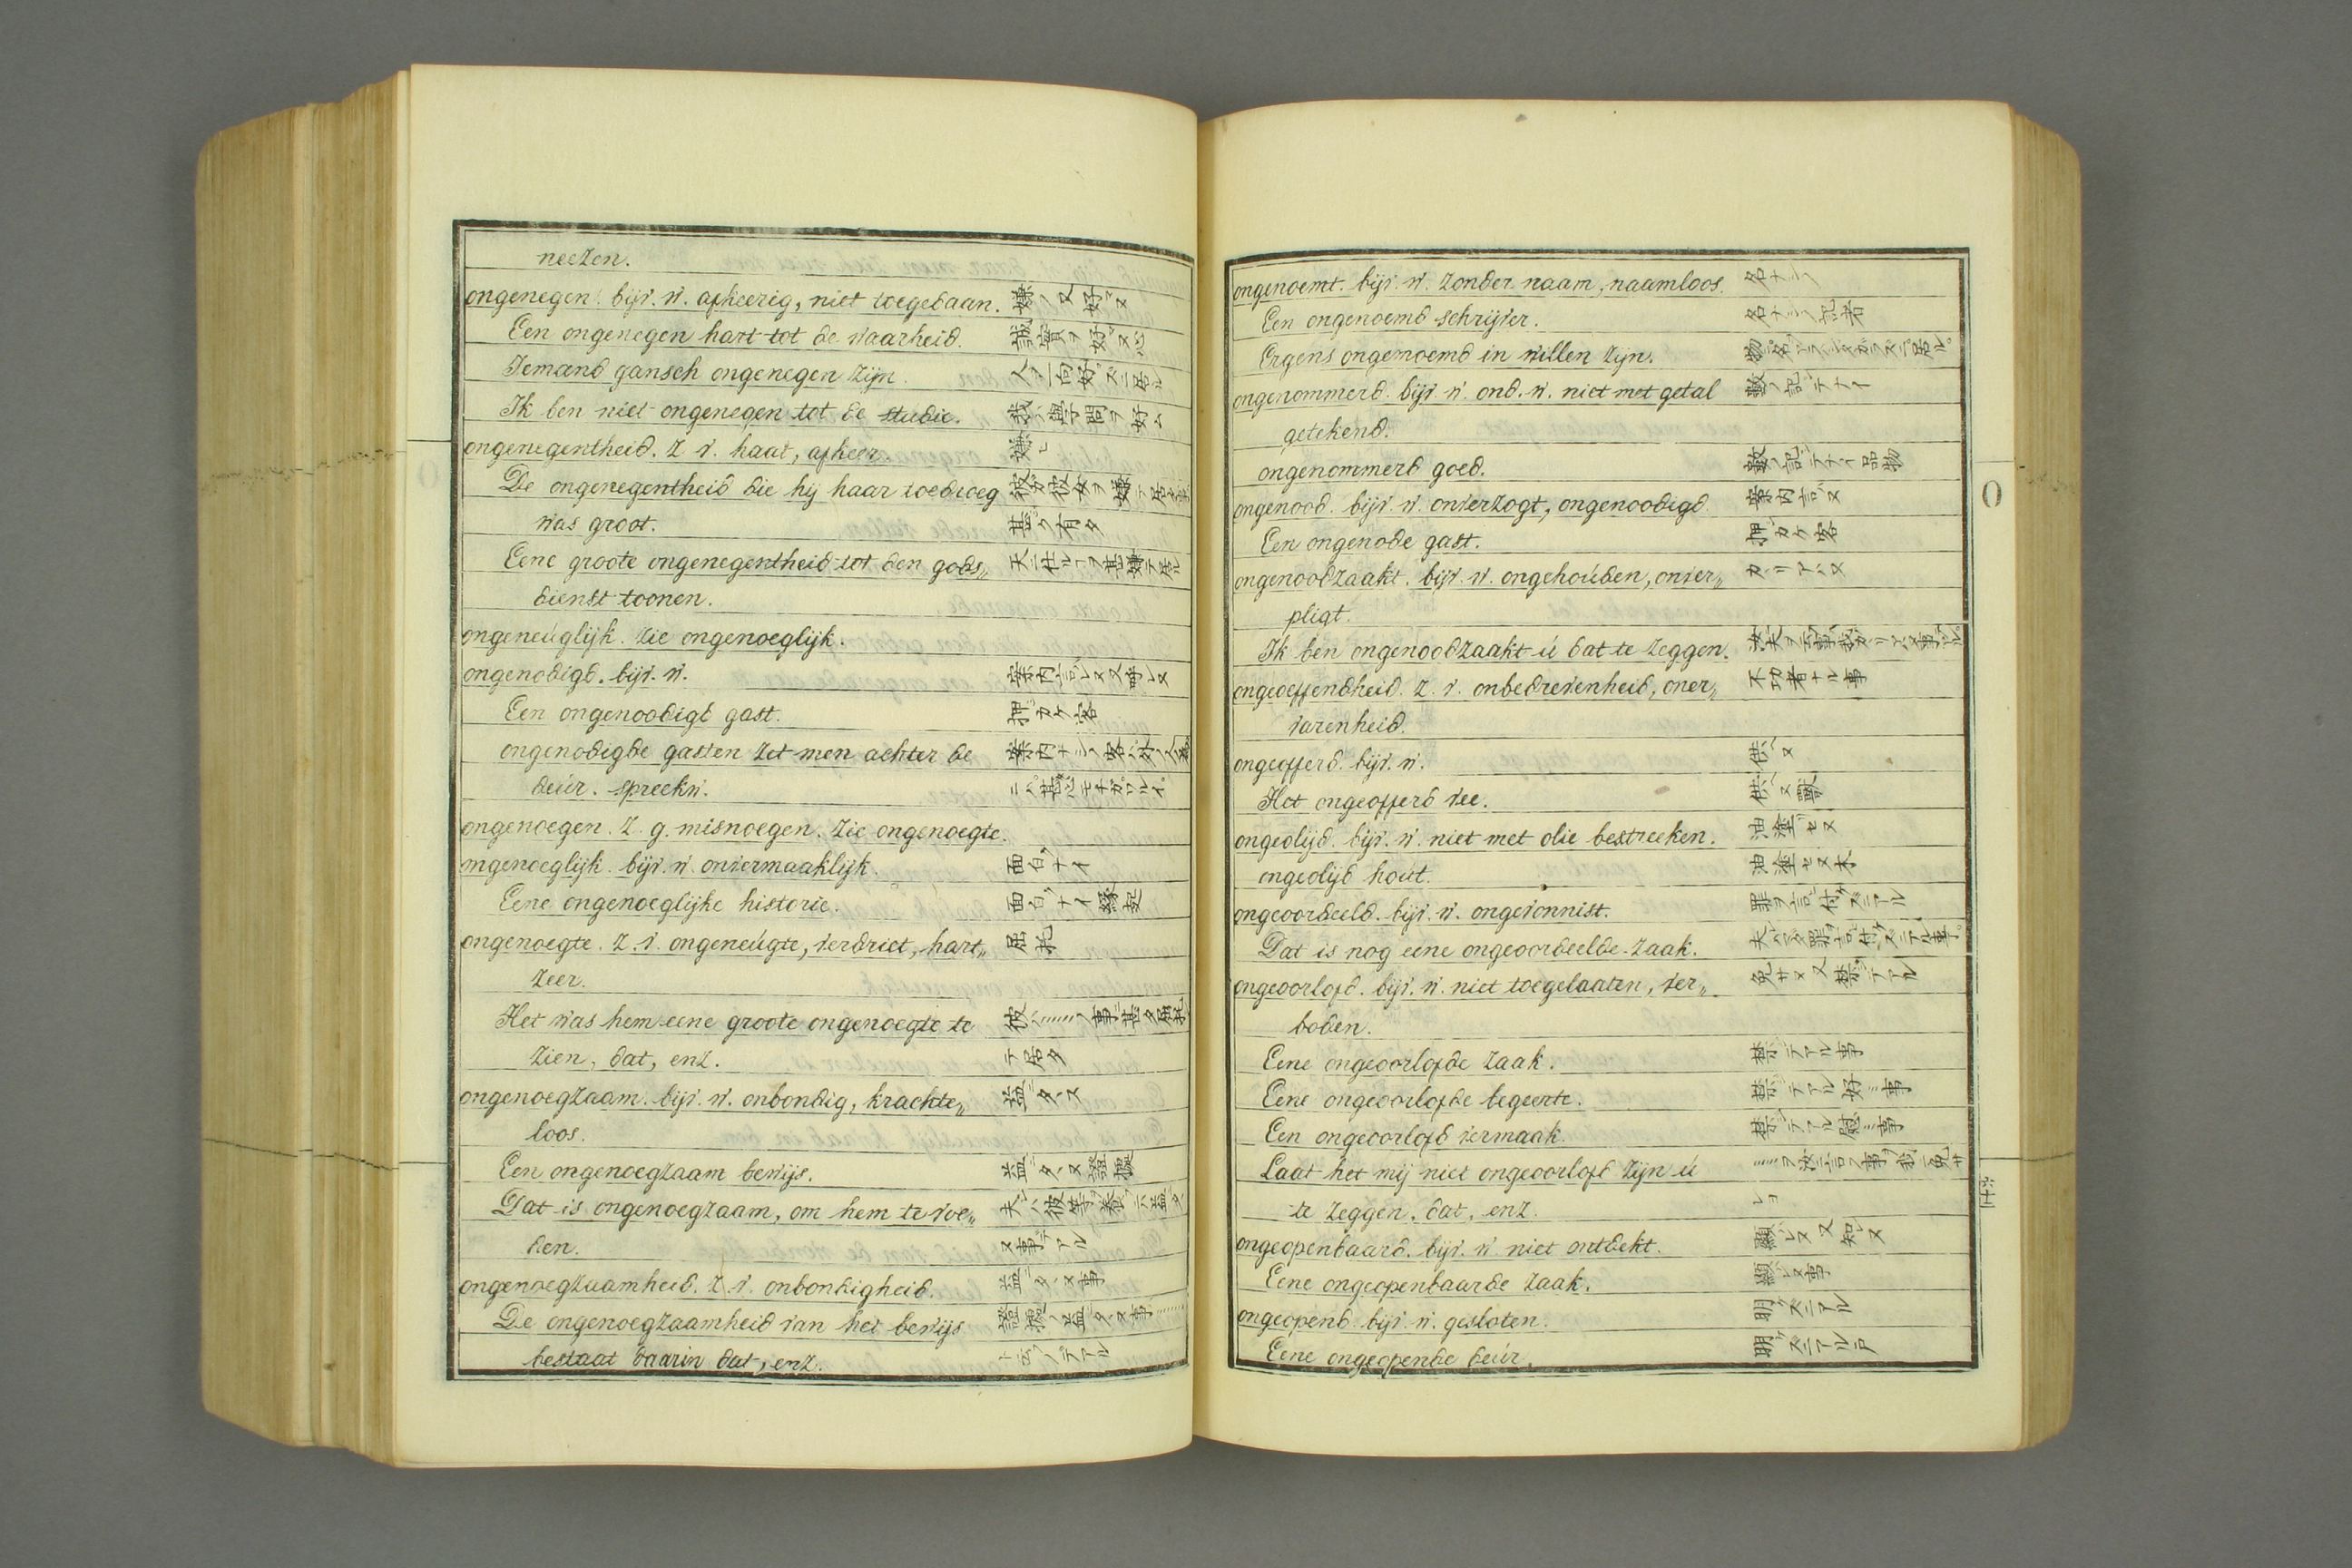 neezen.
ongenegen. bijv. w. afkeerig, niet toegedaan. 嫌ノ又好マヌ
Een ongenegen hart tot de waarheid. 誠實ヲ好マヌ心
Iemand gansch ongenegen zijn.
Ik ben niet ongenegen tot de studie. 我ハ學問ヲ好ム
ongenegentheid. z. v. haat, afkeer. 嫌ヒ
De ongenegentheid die hij haar toedroeg
was groot. 甚ク有タ
Eene groote ongenegentheid tot den gods„
dienst toonen.
ongeneúglijk. zie ongenoeglijk.
ongenodigd. bijv. w.
Een ongenoodigt gast. 押カケ客
ongenodigde gasten zet men achter de
deúr. spreekw.
ongenoegen. z. g. misnoegen. zie ongenoegte.
ongenoeglijk. bijv. w. onvermaaklijk. 面白ナイ
Eene ongenoeglijke historie. 面白ナイ縁起
ongenoegte. z. v. ongeneúgte, verdriet, hart„
zeer.
Het was hem eene groote ongenoegte te
zien, dat, enz. テ居タ
ongenoegzaam. bijv. w. onbondig, krachte„ 益ニタヽヌ
loos.
Een ongenoegzaam bewijs. 益ニタヽヌ證據
Dat is ongenoegzaam, om hem te voe„
den. ヌ事デアル
ongenoegzaamheid. z. v. onbondigheid. 益ニタヽヌ事
De ongenoegzaamheid van het bewijs 證據ノ益ニタヽヌ事
bestaat daarin dat, enz.
ongenoemt. bijv. w. zonder naam, naamloos. 名ナシノ
Een ongenoemd schrijver. 名ナシノ記者
Ergens ongenoemd in willen zijn.
ongenommerd. bijv. w. ond. w. niet met getal 數ノ記シテナイ
getekend.
ongenommerd goed. 數ノ記シテナイ品物
ongenood. bijv. w. onverzogt, ongenoodigd. 案内言ハヌ
Een ongenode gast. 押カケ客
ongenoodzaakt. bijv. w. ongehoúden, onver„ カヽリアハヌ
pligt.
Ik ben ongenoodzaakt ú dat te zeggen.
ongeoeffendheid. z. v. onbedrevenheid, oner„ 不功者ナル事
varenheid.
ongeofferd. bijv. w. 供ヘヌ
Het ongeofferd vee. 供ヘヌ獸
ongeolijd. bijv. w. niet met olie bestreeken. 油塗セヌ
ongeolijd hoút. 油塗セヌ木
ongeoordeeld. bijv. w. ongevonnist. 罪ヲ言付ケズニアル
Dat is nog eene ongeoordeelde zaak.
ongeoorlofd. bijv. w. niet toegelaaten, ver„ 免サヌ又禁シテアル
boden.
Eene ongeoorlofde zaak. 禁シテアル事
Eene ongeoorlofde begeerte. 禁シテアル好ミ事
Een ongeoorlofd vermaak. 禁シテアル慰ミ事
Laat het mij niet ongeoorlofd zijn ú
te zeggen, dat, enz. レヨ
ongeopenbaard. bijv. w. niet ontdekt. 顯レヌ又知レヌ
Eene ongeopenbaarde zaak. 顯レヌ事
ongeopend. bijv. w. gesloten. 明ケズニアル
Eene ongeopende deúr. 明ケズニアル戸
O